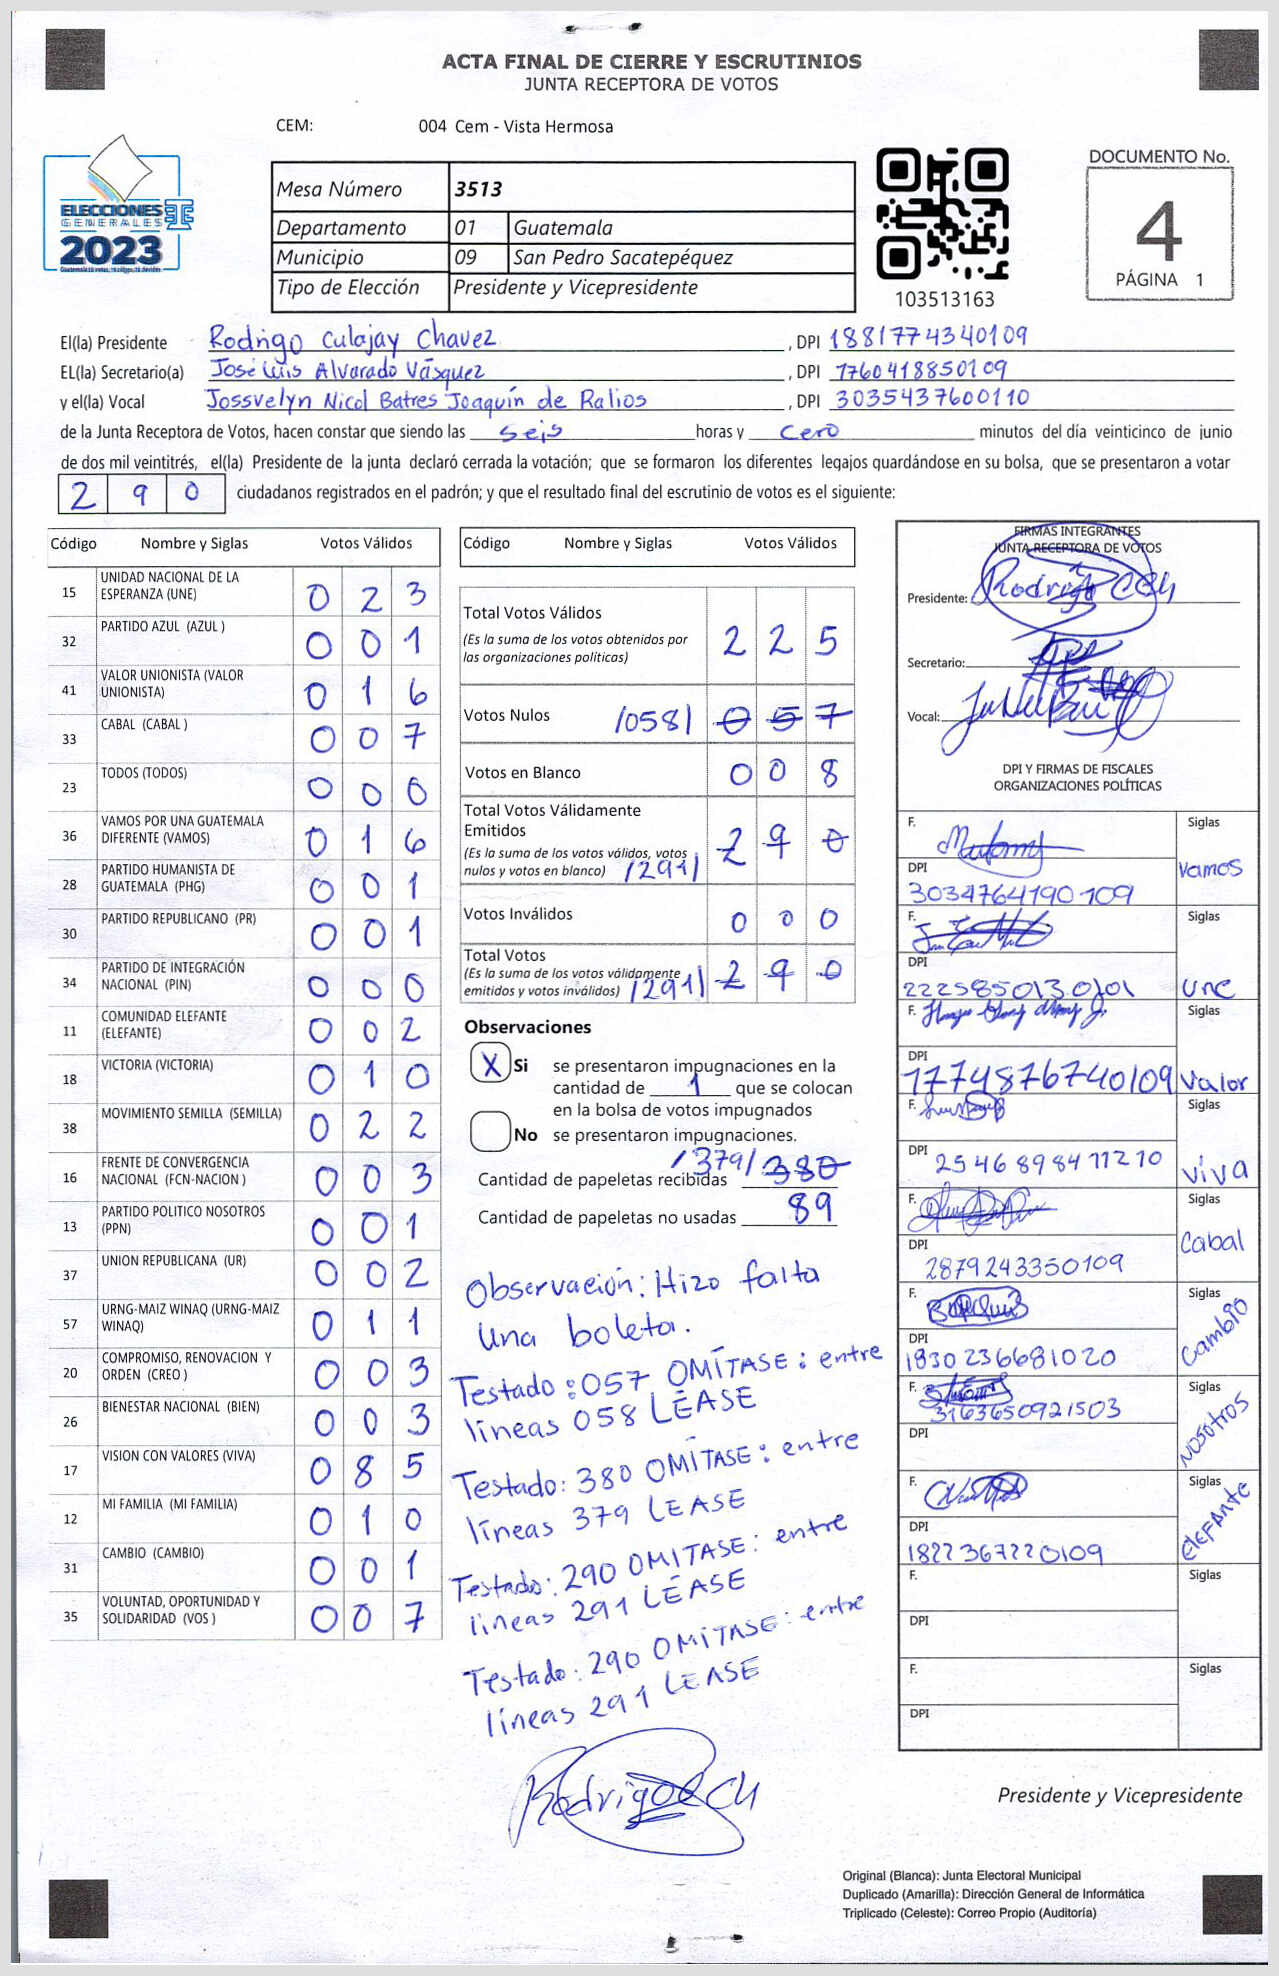 ACTA FINAL DE CIERRE Y ESCRUTINIOS
JUNTA RECEPTORA DE VOTOS
CEM: 004 Cem - Vista Hermosa
DOCUMENTO No.
4
PÁGINA 1
ELECCIONES
GENERALES
2023
Mesa Número 3513
Departamento 01 Guatemala
Municipio 09 San Pedro Sacatepéquez
Tipo de Elección Presidente y Vicepresidente
103513163
El(la) Presidente Rodrigo Culajay Chavez, DPI 1881774340109
EL(la) Secretario(a) José Luis Alvarado Vásquez, DPI 1760418850109
y el(la) Vocal Jossvelyn Nicol Batres Joaquín de Ralios, DPI 3035437600110
de la Junta Receptora de Votos, hacen constar que siendo las seis horas y cero minutos del día veinticinco de junio
de dos mil veintitrés, el(la) Presidente de la junta declaró cerrada la votación; que se formaron los diferentes legajos quardándose en su bolsa, que se presentaron a votar
290 ciudadanos registrados en el padrón; y que el resultado final del escrutinio de votos es el siguiente:
Código Nombre y Siglas Votos Válidos
15 UNIDAD NACIONAL DE LA ESPERANZA (UNE) 023
32 PARTIDO AZUL (AZUL ) 001
41 VALOR UNIONISTA (VALOR UNIONISTA) 016
33 CABAL (CABAL ) 007
23 TODOS (TODOS) 000
36 VAMOS POR UNA GUATEMALA DIFERENTE (VAMOS) 016
28 PARTIDO HUMANISTA DE GUATEMALA (PHG) 001
30 PARTIDO REPUBLICANO (PR) 001
34 PARTIDO DE INTEGRACIÓN NACIONAL (PIN) 000
11 COMUNIDAD ELEFANTE (ELEFANTE) 002
18 VICTORIA (VICTORIA) 010
38 MOVIMIENTO SEMILLA (SEMILLA) 022
16 FRENTE DE CONVERGENCIA NACIONAL (FCN-NACION ) 003
13 PARTIDO POLITICO NOSOTROS (PPN) 001
37 UNION REPUBLICANA (UR) 002
57 URNG-MAIZ WINAQ (URNG-MAIZ WINAQ) 011
20 COMPROMISO, RENOVACION Y ORDEN (CREO ) 003
26 BIENESTAR NACIONAL (BIEN) 003
17 VISION CON VALORES (VIVA) 085
12 MI FAMILIA (MI FAMILIA) 010
31 CAMBIO (CAMBIO) 001
35 VOLUNTAD, OPORTUNIDAD Y SOLIDARIDAD (VOS ) 007
Código Nombre y Siglas Votos Válidos
Total Votos Válidos
(Es la suma de los votos obtenidos por
las organizaciones politicas) 225
Votos Nulos /058/ 057
Votos en Blanco 008
Total Votos Válidamente
Emitidos
(Es la suma de los votos válidos, votos
nulos y votos en blanco) /291/ 290
Votos Inválidos 000
Total Votos
(Es la suma de los votos válidamente
emitidos y votos inválidos) /291/ 290
Observaciones
X Si se presentaron impugnaciones en la
cantidad de 1 que se colocan
en la bolsa de votos impugnados
No se presentaron impugnaciones.
Cantidad de papeletas recibidas /379/ 380
Cantidad de papeletas no usadas 89
Observación: Hizo falta
una boleta.
Testado: 057 OMÍTASE: entre
líneas 058 LÉASE
Testado: 380 OMÍTASE: entre
líneas 379 LEASE
Testado: 290 OMITASE: entre
lineas 291 LÉASE
Testado: 290 OMÍTASE: entre
líneas 291 LEASE
Rodrigo CCH
FIRMAS INTEGRANTES
JUNTA RECEPTORA DE VOTOS
Presidente: Rodrigo CCH
Secretario:
Vocal:
DPI Y FIRMAS DE FISCALES
ORGANIZACIONES POLÍTICAS
F. Siglas
DPI Vamos
3034764190109
F. Siglas
DPI
2225850130101 une
F. Siglas
DPI
1774876740109 Valor
F. Siglas
DPI 2546898411210 viva
F. Siglas
DPI Cabal
2879243350109
F. Siglas
DPI Cambio
1830236681020
F. Siglas
3163650921503
DPI Nosotros
F. Siglas
DPI elefante
1822367220109
F. Siglas
DPI
F. Siglas
DPI
Presidente y Vicepresidente
Original (Blanca): Junta Electoral Municipal
Duplicado (Amarilla): Dirección General de Informática
Triplicado (Celeste): Correo Propio (Auditoría)